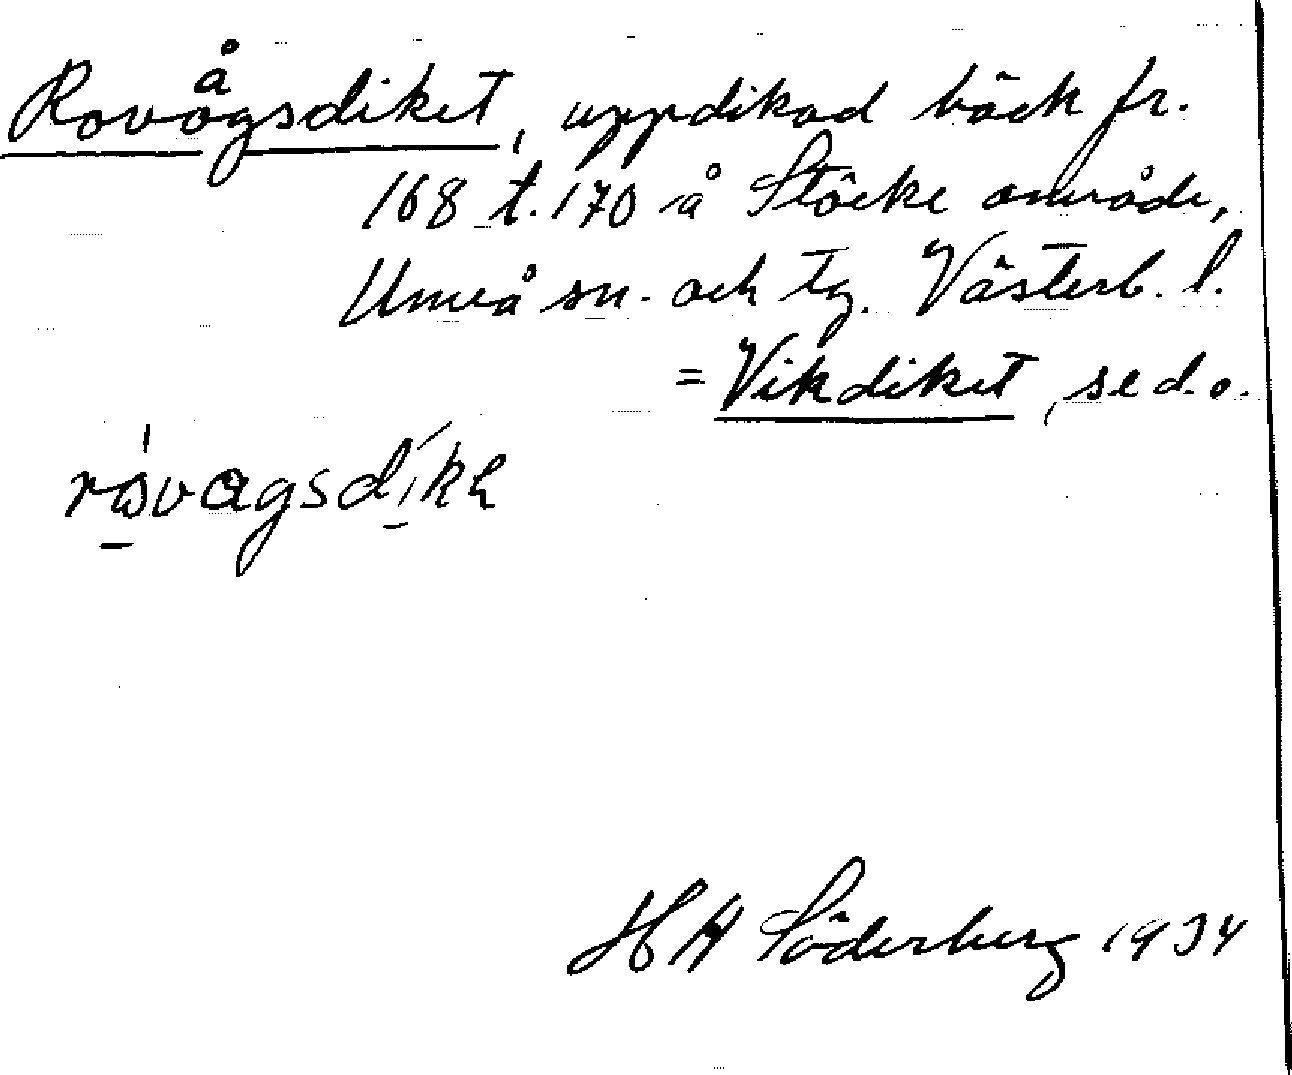 å
Rovogsdiket, uppdikad bäck fr.
168 t. 170 å Stöcke område,
Umeå sn. och tg. Västerb. l.
= Vikdiket, se d. o.
Söderberg 1934